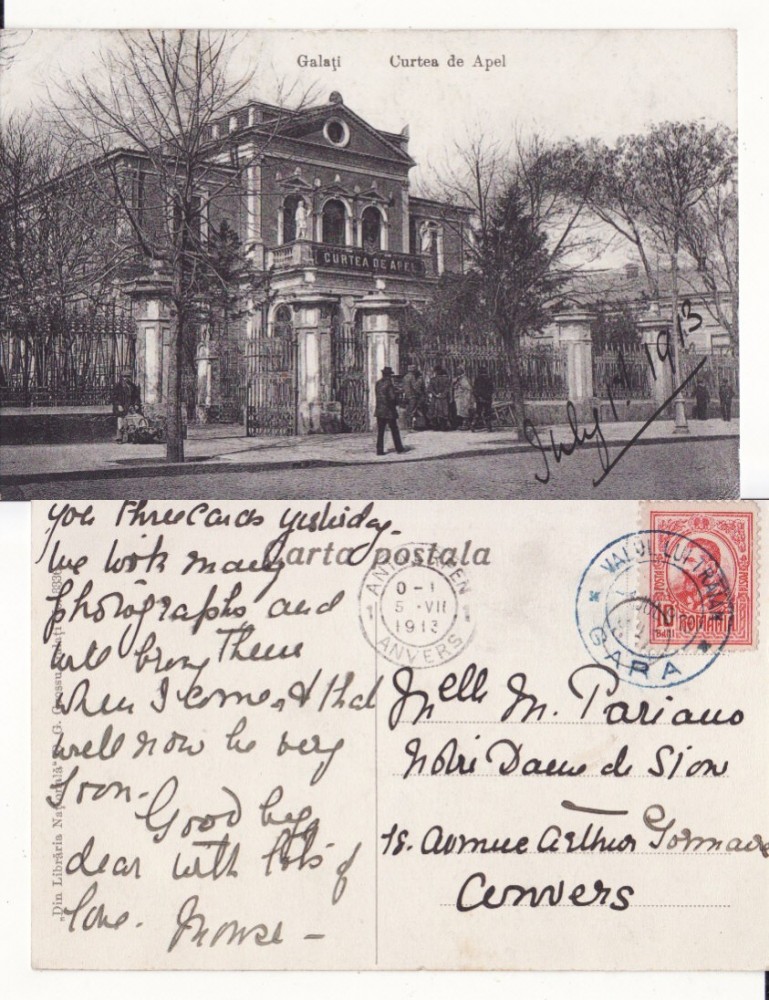 Galați Curtea de Apel
CURTEA DE APEL
July 1913
you three cards yesterday.
We took many
photographs and
will bring them
when I come, & that
will now be very
soon.
Good bye
dear with lots of
love. Mouse -
Carta postala
ANTWERPEN
0-1
5 VII
1913
ANVERS
VALUL LUI TRAIAN
GARA
10
BANI
ROMANIA
Melle M. Pariano
Notre Dame de Sion
18. Avenue Arthur
Anvers
„Din Librăria Națională" G.